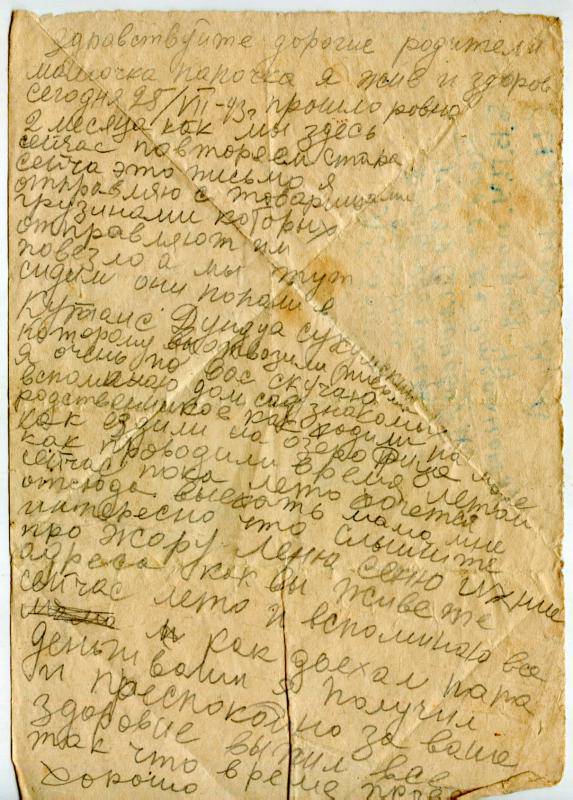 Здравствуйте дорогие родители
мамочка папочка я жив и здоров
сегодня 25/VII-43г прошло ровно
2 месяца как мы здесь
сейчас повторяем стара
сейча это письмо я
отправляю с товарищами
грузинами которых
отправляют им
повезло а мы тут
сидим они попали в
Кутаис Дундуа сухумский
которому вы
я очень по вас скучаю
вспоминаю дом сад знакомых
родственников как ходили на море
как ездили на озеро Рица
как проводили время летом
сейчас пока лето хочется
отсюда выехать мама мне
интересно что слышите
про Жору Леню Сеню их
адреса как вы живете
сейчас лето и вспоминаю все
как доехал папа
деньги ваши я получил
и преспокойно за ваше
здоровие выпил
так что время
хорошо